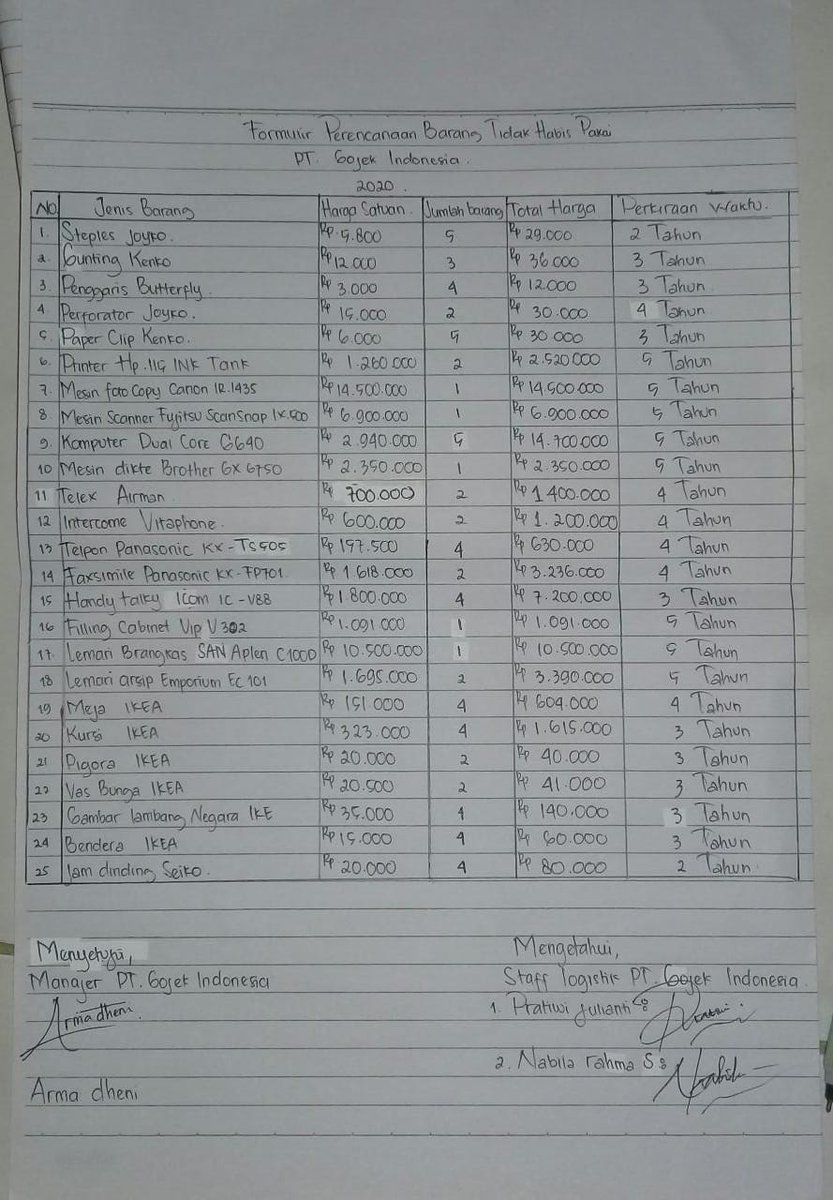 Formulir Perencanaan Barang Tidak Habis Pakai
PT. Gojek Indonesia.
2020.
No Jenis Barang Harga Satuan. Jumlah barang Total Harga Perkiraan Waktu.
1. Steples Joyko. Rp. 5.800 5 Rp 29.000 2 Tahun
2. Gunting Kenko Rp 12.000 3 Rp 36 000 3 Tahun
3 Penggaris Butterfly. Rp 3.000 4 Rp 12.000 3 Tahun
4 Perforator Joyko. Rp 15.000 2 Rp 30.000 4 Tahun
5. Paper Clip Kenko. Rp 6.000 5 Rp 30 000 3 Tahun
6. Printer Hp.115 INK Tank Rp 1.260 000 2 Rp 2.520000 5 Tahun
7. Mesin foto Copy Canon IR.1435 Rp 14.500.000 1 Rp 14.500000 5 Tahun
8. Mesin Scanner Fujitsu ScanSnap IX.500 Rp 6.900.000 1 Rp 6.900.000 5 Tahun
9. Komputer Dual Core G640 Rp 2.940.000 5 Rp 14.700.000 5 Tahun
10 Mesin dikte Brother GX 6750 Rp 2.350.000 1 Rp 2.350.000 5 Tahun
11 Telex Airman Rp 700.000 2 Rp 1 400.000 4 Tahun
12 Intercome Vitaphone. Rp 600.000 2 Rp 1.200.000 4 Tahun
13 Telpon Panasonic KX-TS505 Rp 197.500 4 Rp 630.000 4 Tahun
14 Faxsimile Panasonic KX-FP701 Rp 1.618.000 2 Rp 3.236.000 4 Tahun
15 Handy talky Icom IC-V88 Rp 1 800.000 4 Rp 7.200.000 3 Tahun
16 Filling Cabinet Vip V302 Rp 1.091 000 1 Rp 1.091.000 5 Tahun
17. Lemari Brangkas SAN Aplen C1000 Rp 10.500.000 1 Rp 10.500.000 5 Tahun
18 Lemari arsip Emporium EC 101 Rp 1.695.000 2 Rp 3.390.000 5 Tahun
19 Meja IKEA Rp 151 000 4 Rp 604.000 4 Tahun
20 Kursi IKEA Rp 323.000 4 Rp 1.615.000 3 Tahun
21 Pigora IKEA Rp 20.000 2 Rp 40.000 3 Tahun
22 Vas Bunga IKEA Rp 20.500 2 Rp 41.000 3 Tahun
23 Gambar lambang Negara IKE Rp 35.000 4 Rp 140.000 3 Tahun
24 Bendera IKEA Rp 15.000 4 Rp 60.000 3 Tahun
25 Jam dinding Seiko. Rp 20.000 4 Rp 80.000 2 Tahun
Menyetujui, Mengetahui,
Manajer PT. Gojek Indonesia Staff logistik PT. Gojek Indonesia.
Arma dheni. 1. Pratiwi Julianti
2. Nabila rahma S :
Arma dheni